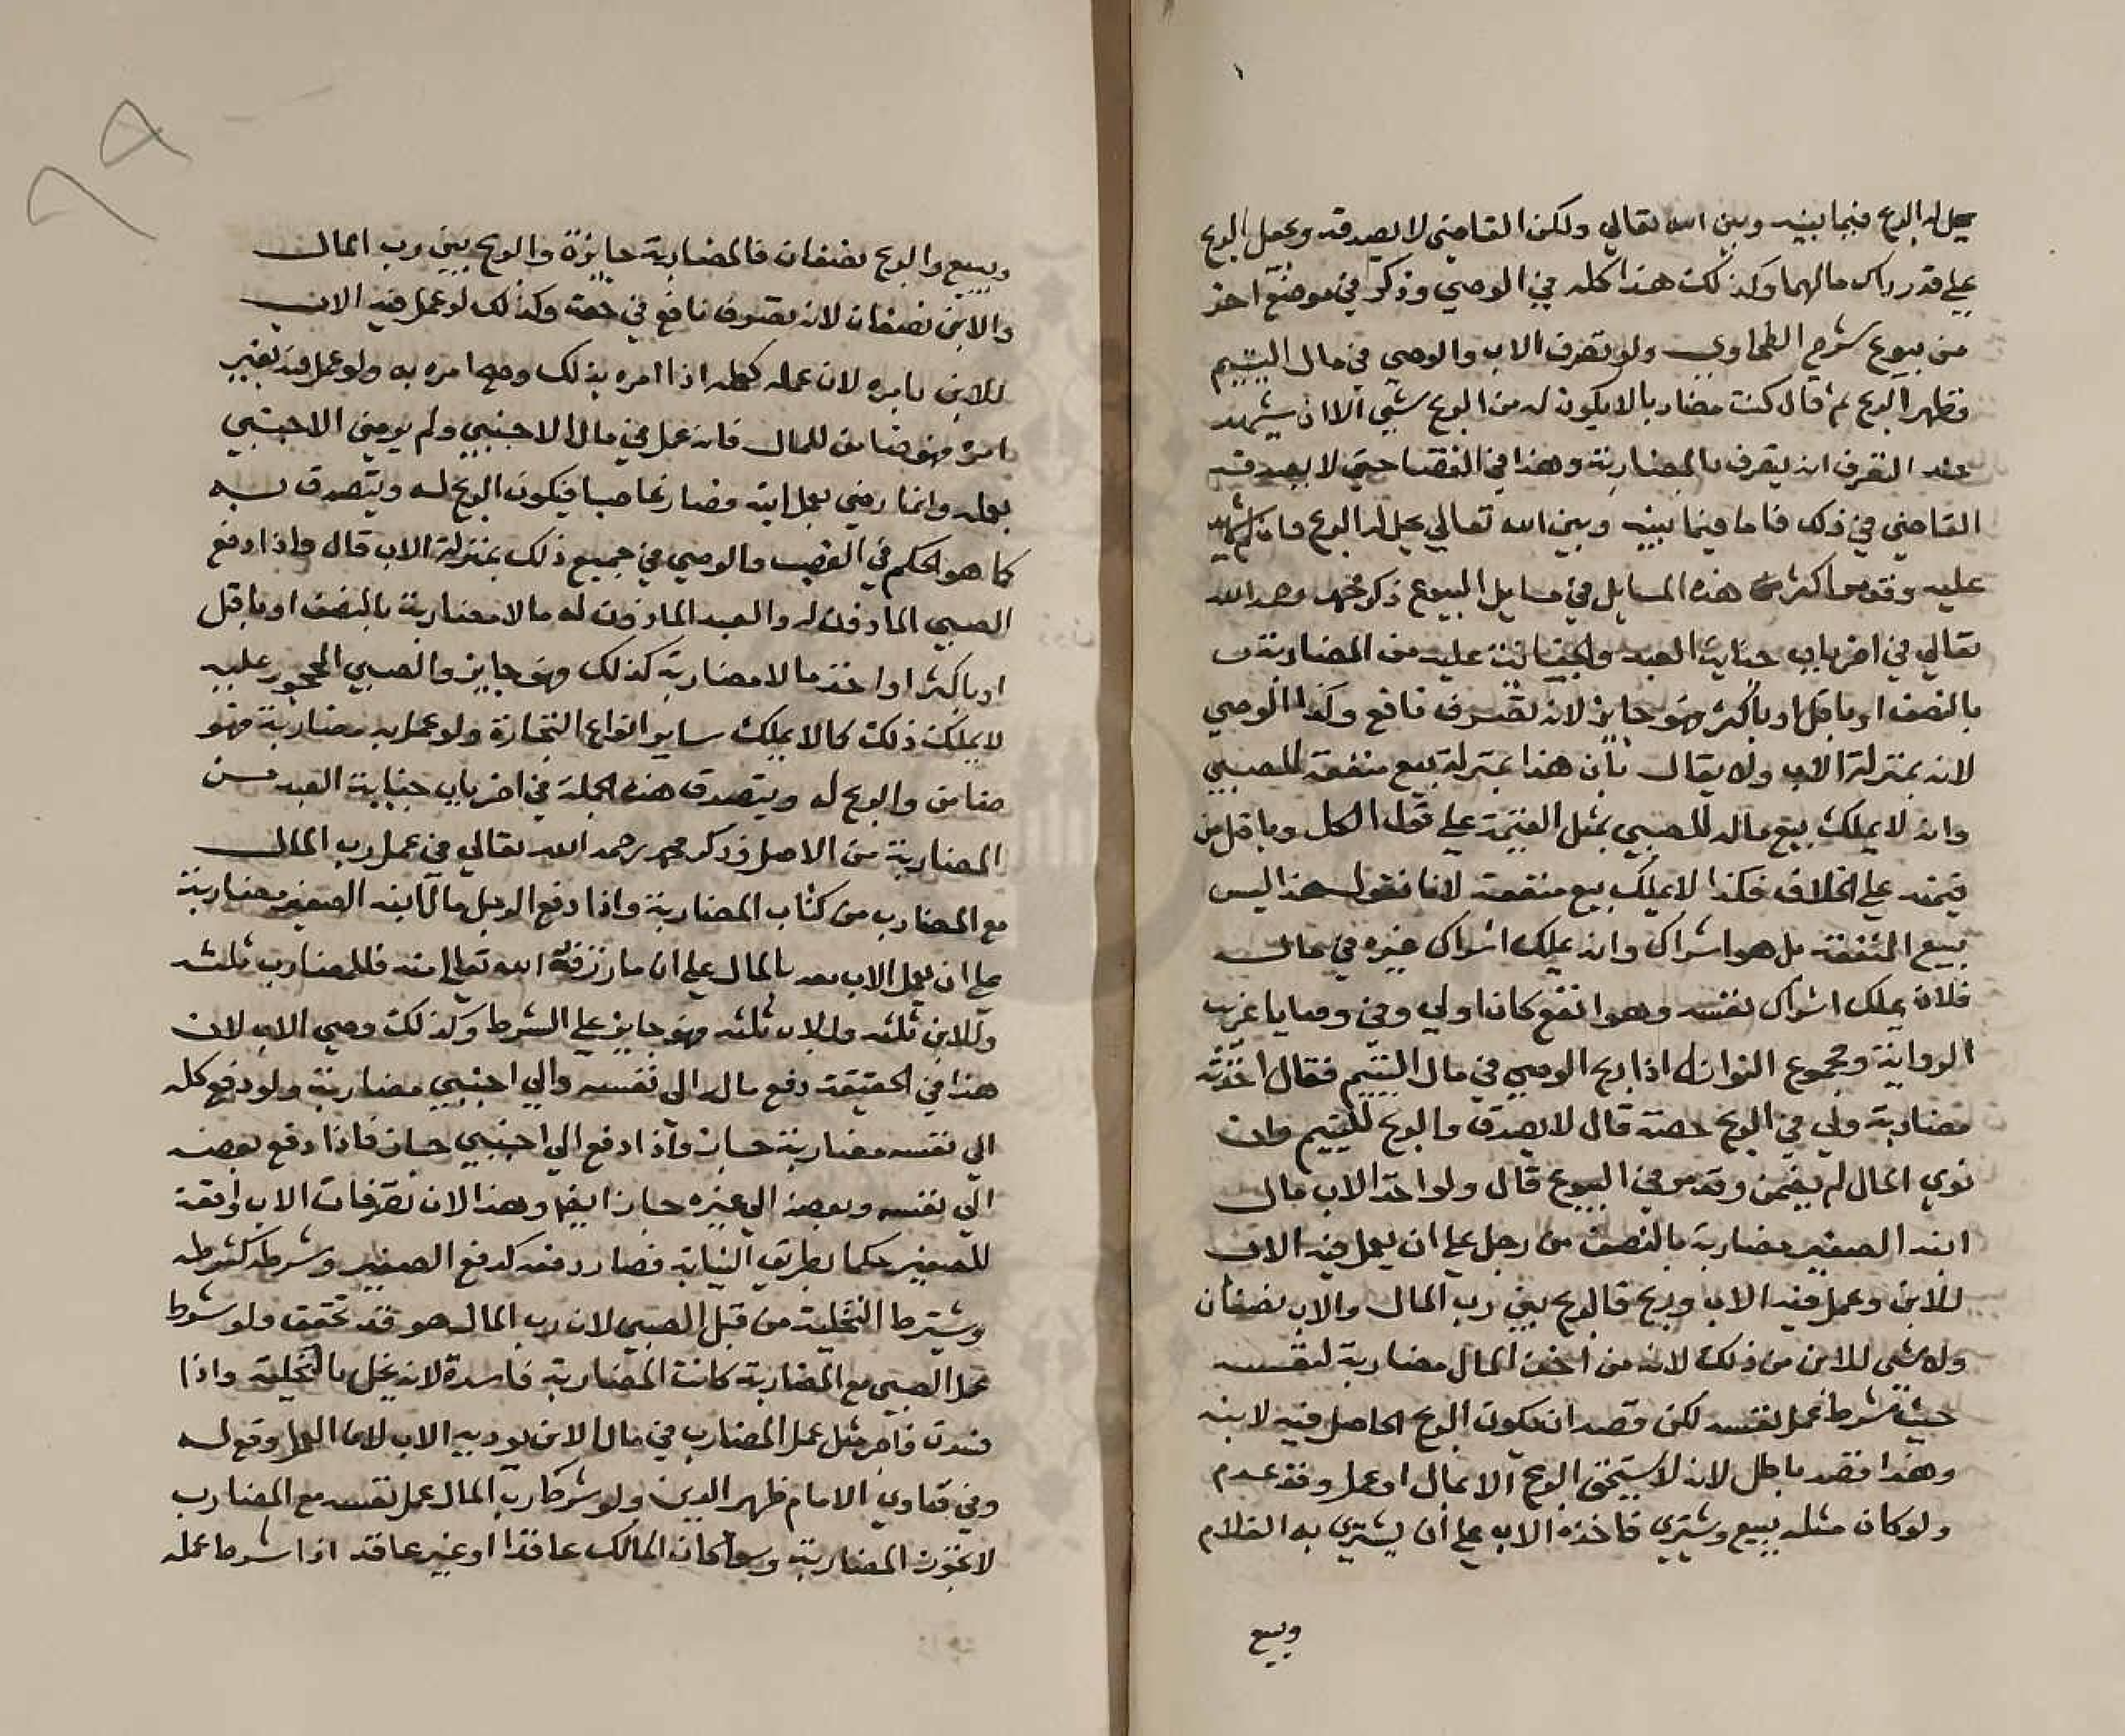 يحل له الربح فيما بينه وبين الله تعالي ولكن القاضي لا يصدقه ويجعل الربح
علي قدر راس مالهما وكذلك هذا كله في الوصي وذكر في موضع اخر
من بيوع شرح الطحاوي ولو تصرف الاب والوصي في مال اليتيم
فظهر الربح ثم قال كنت مضاربا لا يكون له من الربح شي الا ان يشهد
عند التصرف انه يتصرف بالمضاربة وهذا في القضا حتي لا يصدقه
القاضي في ذلك فاما فيما بينه وبين الله تعالي يحل له الربح وان لم يشهد
عليه وقد مر اكثر هذه المسايل في مسايل البيوع ذكر محمد رحمه الله
تعالي في اخر باب جناية العبد والجناية عليه من المضاربة
بالنصف او باقل او باكثر فهو جايز لانه تصرف نافع وكذا الوصي
لانه بمنزلة الاب ولا يقال بان هذا بمنزلة بيع منفعة للصبي
وانه لا يملك بيع ماله للصبي بمثل القيمة علي قول الكل وباقل من
قيمته علي الخلاف فكذا لا يملك بيع منفعته لانا نقول هذا ليس
ببيع المنفعة بل هو اشراك وانه يملك اشراك غيره في ماله
فلان يملك اشراك نفسه وهو انفع كان اولي وفي وصايا غريب
الرواية ومجموع النوازل اذا ربح الوصي في مال اليتيم فقال اخذته
مضاربة ولي في الربح حصة قال لا يصدق والربح لليتيم وان
نوي المال لم يضمن وقد مر في البيوع قال ولو اخذ الاب مال
ابنه الصغير مضاربة بالنصف من رجل علي ان يعمل فيه الاب
للابن وعمل فيه الاب وربح فالربح بين رب المال والاب نصفان
ولا شي للابن من ذلك لانه من اخذ المال مضاربة لنفسه
حيث شرط عمل نفسه لكن قصد ان يكون الربح الحاصل فيه لابنه
وهذا قصد باطل لانه لا يستحق الربح الا بمال او عمل وقد عدم
ولو كان مثله يبيع ويشتري فاخذه الاب علي ان يشتري به الغلام
ويبيع
ويبيع والربح نصفان فالمضاربة جايزة والربح بين رب المال
والابن نصفان لانه تصرف نافع في حقه وكذلك لو عمل فيه الاب
للابن بامره لان عمله كعمله اذا امره بذلك وصح امره به ولو عمل فيه بغير
امره فهو ضامن للمال فانه عمل في مال الاجنبي ولم يرض الاجنبي
بعمله وانما رضي بعمل ابنه فصار غاصبا فيكون الربح له ويتصدق به
كما هو الحكم في الغصب والوصي في جميع ذلك بمنزلة الاب قال واذا دفع
الصبي الماذون له والعبد الماذون له مالا مضاربة بالنصف او باقل
او باكثر او اخذ مالا مضاربة كذلك فهو جايز والصبي المحجور عليه
لا يملك ذلك كما لا يملك ساير انواع التجارة ولو عمل به مضاربة فهو
ضامن والربح له ويتصدق هذه الجملة في اخر باب جناية العبد من
المضاربة من الاصل وذكر محمد رحمه الله تعالي في عمل رب المال
مع المضارب من كتاب المضاربة واذا دفع الرجل مال ابنه الصغير مضاربة
علي ان يعمل الاب معه بالمال علي ان ما رزقه الله تعالي منه فللمضارب ثلثه
وللابن ثلثه وللاب ثلثه فهو جايز علي الشرط وكذلك وصي الاب لان
هذا في الحقيقة دفع ماله الي نفسه والي اجنبي مضاربة ولو دفع كله
الي نفسه مضاربة جاز واذا دفع الي اجنبي جاز فاذا دفع بعضه
الي نفسه وبعضه الي غيره جاز ايضا وهذا لان تصرفات الاب واقعة
للصغير حكما بطريق النيابة فصار دفعه كدفع الصغير وشرطه كشرطه
ويشترط التخلية من قبل الصبي لان رب المال هو قد تحقق ولو شرط
عمل الصبي مع المضاربة كانت المضاربة فاسدة لانه يخل بالتخلية واذا
فسدت فاجر مثل عمل المضارب في مال الابن يوديه الاب لان العمل وقع له
وفي فتاوي الامام ظهير الدين ولو شرط رب المال عمل نفسه مع المضارب
لا تجوز المضاربة وسوا كان المالك عاقدا او غير عاقد اذا شرط عمله